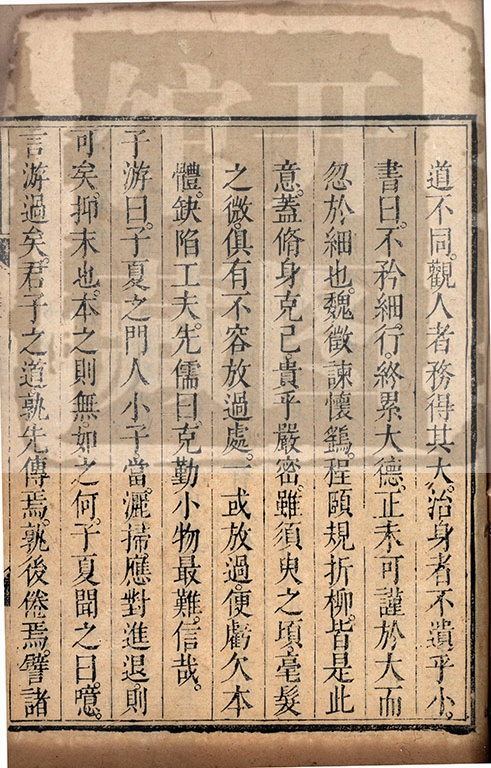 道不同。觀人者務得其大。治身者不遺乎小。
書曰。不矜細行。終累大德。正未可謹於大而
忽於細也。魏徵諫懷鷂。程頤規折柳。皆是此
意。蓋脩身克己。貴乎嚴密。雖須臾之頃。毫髮
之微。俱有不容放過處。一或放過。便虧欠本
體。缺陷工夫。先儒曰。克勤小物最難。信哉。
子游曰。子夏之門人小子。當灑掃應對進退則
可矣。抑末也。本之則無。如之何。子夏聞之曰。噫。
言游過矣。君子之道。孰先傳焉。孰後倦焉。譬諸